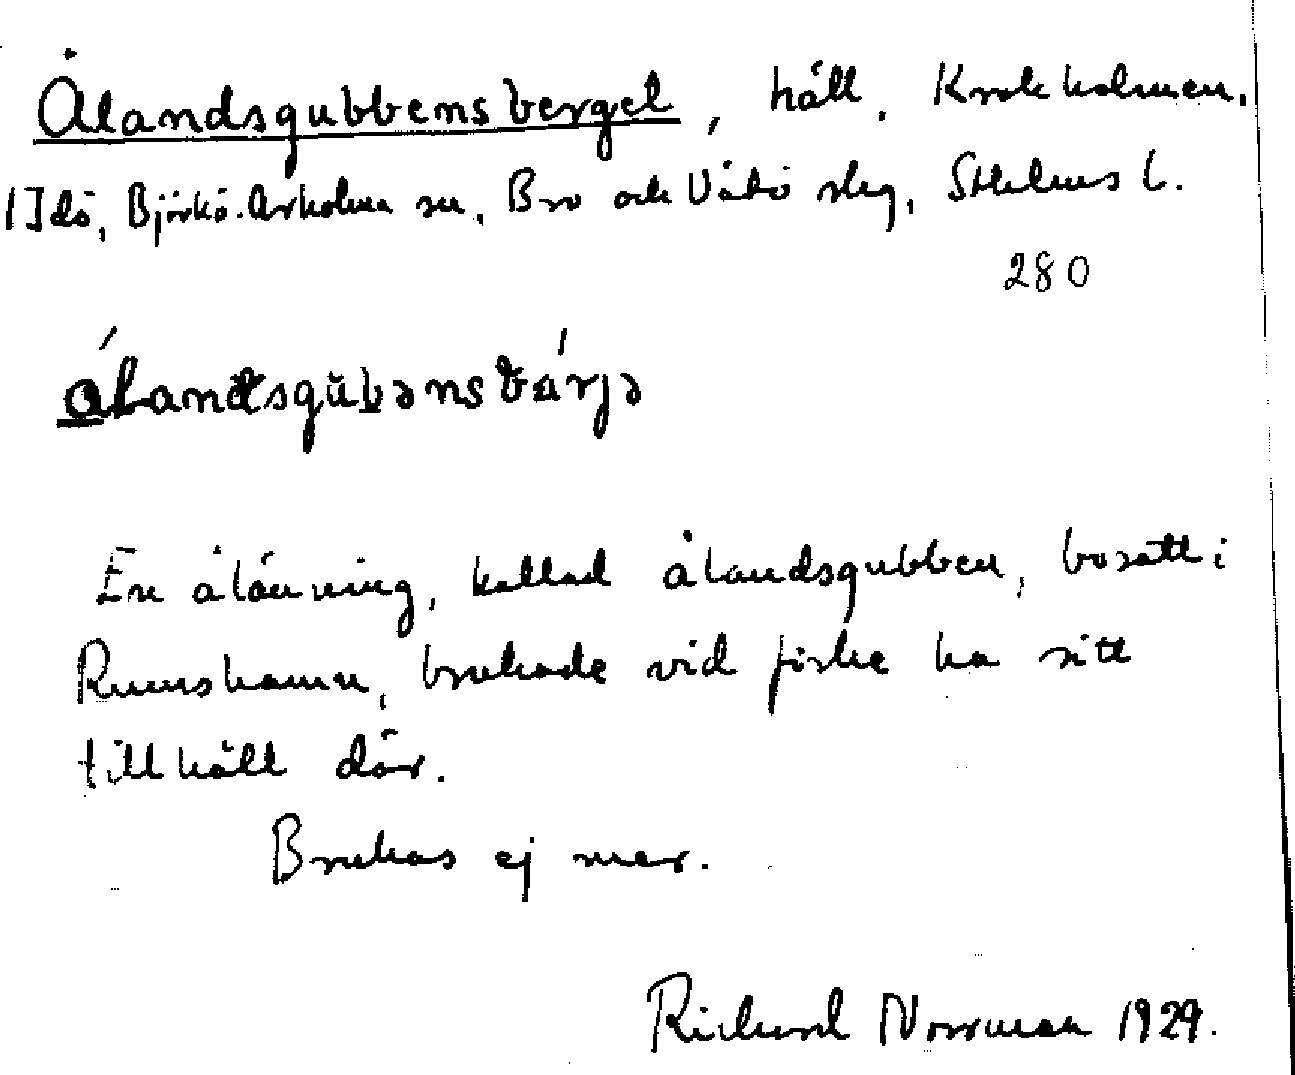 Ålandsgubbens berget, häll, Krokholmen,
1] Idö, Björkö-Arholma sn, Bro och Vätö slg, Sthlms l.
280
ålandsgubəns bärjə
En ålänning, kallad ålandsgubben, bosatt i
Rumshamn, brukade vid fiske ha sitt
tillhåll där.
Brukas ej mer.
Richard Norrman 1929.